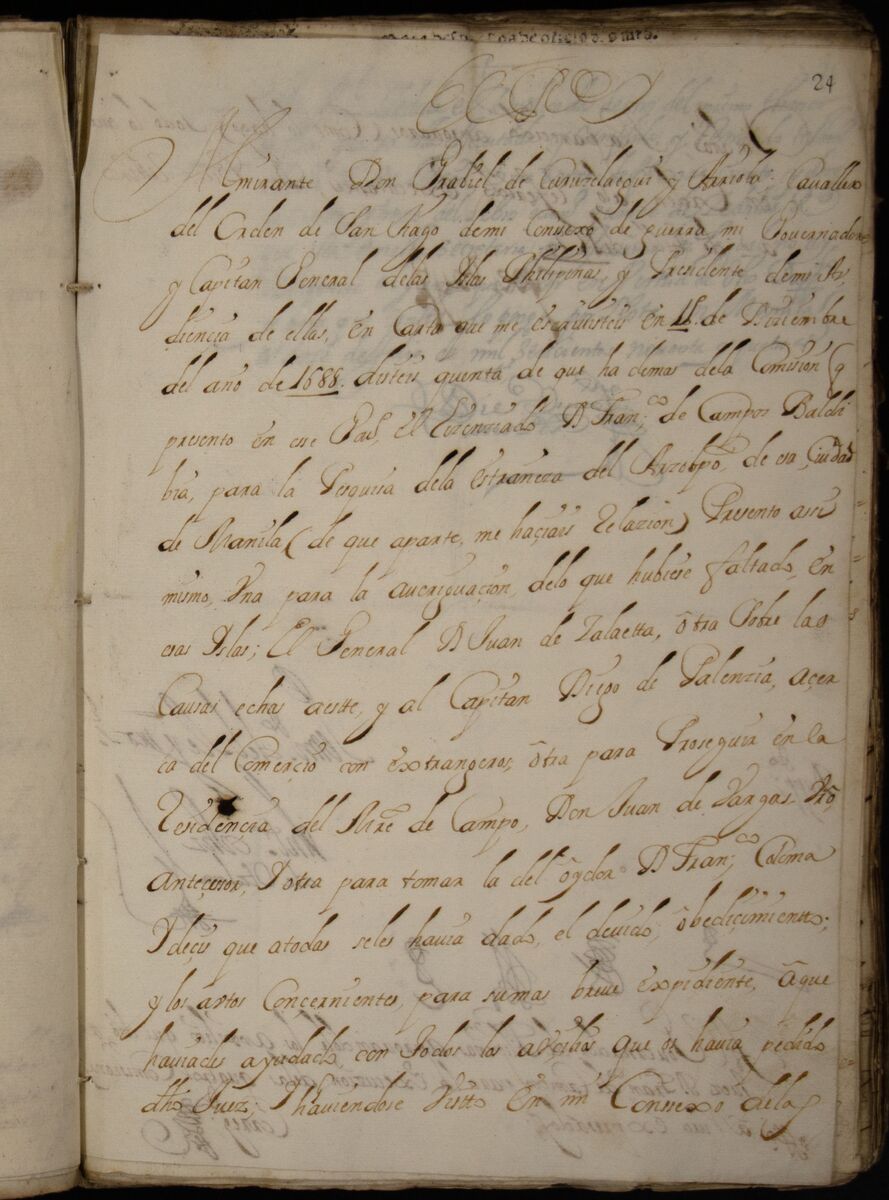 24
El Rey
Almirante Don Grabiel de Curuzelaegui y Arriola; Cavallero
del Orden de San Tiago demi Consexo de guerra mi Governador
y Capitan General delas Yslas Philipinas, y Presidente demi Au
diencia de ellas, en Carta que me escriuisteis en 15. de Diziembre
del año de 1688. disteis quenta de que ha demas dela Comision (q
presento en ese Pais, el Lizenciado D Fran.co de Campos Baldi
bia, para la Pesquisa dela estrañeza del Arzobpo, de esa Ciudad
de Manila (de que aparte, me haçiais relazion) Presento asi
mismo, Vna para la aueriguaçion, delo que hubiese faltado, en
esas Yslas; El General D Juan de Zalaetta, ôtra Sobre las
Causas echas aeste, y al Capitan Diego de Palenzia, açer
ca del Comerçio con extrangeros, ôtra para Proseguir en la
Residençia del Mre de Campo, Don Juan de Vargas Vrõ,
Anteçesor, Y otra para tomar la del ôydor D Fran.co Calema
Y deçis que atodas seles hauia dado, el deuido; ôbediçimientto;
y los autos Concernientes, para sumas breue expidiente, âque
hauiades ayudado con Todos los arbitrios que os hauia pedido
dho Juez; Y hauiendose Vistto en mi Consexo delas